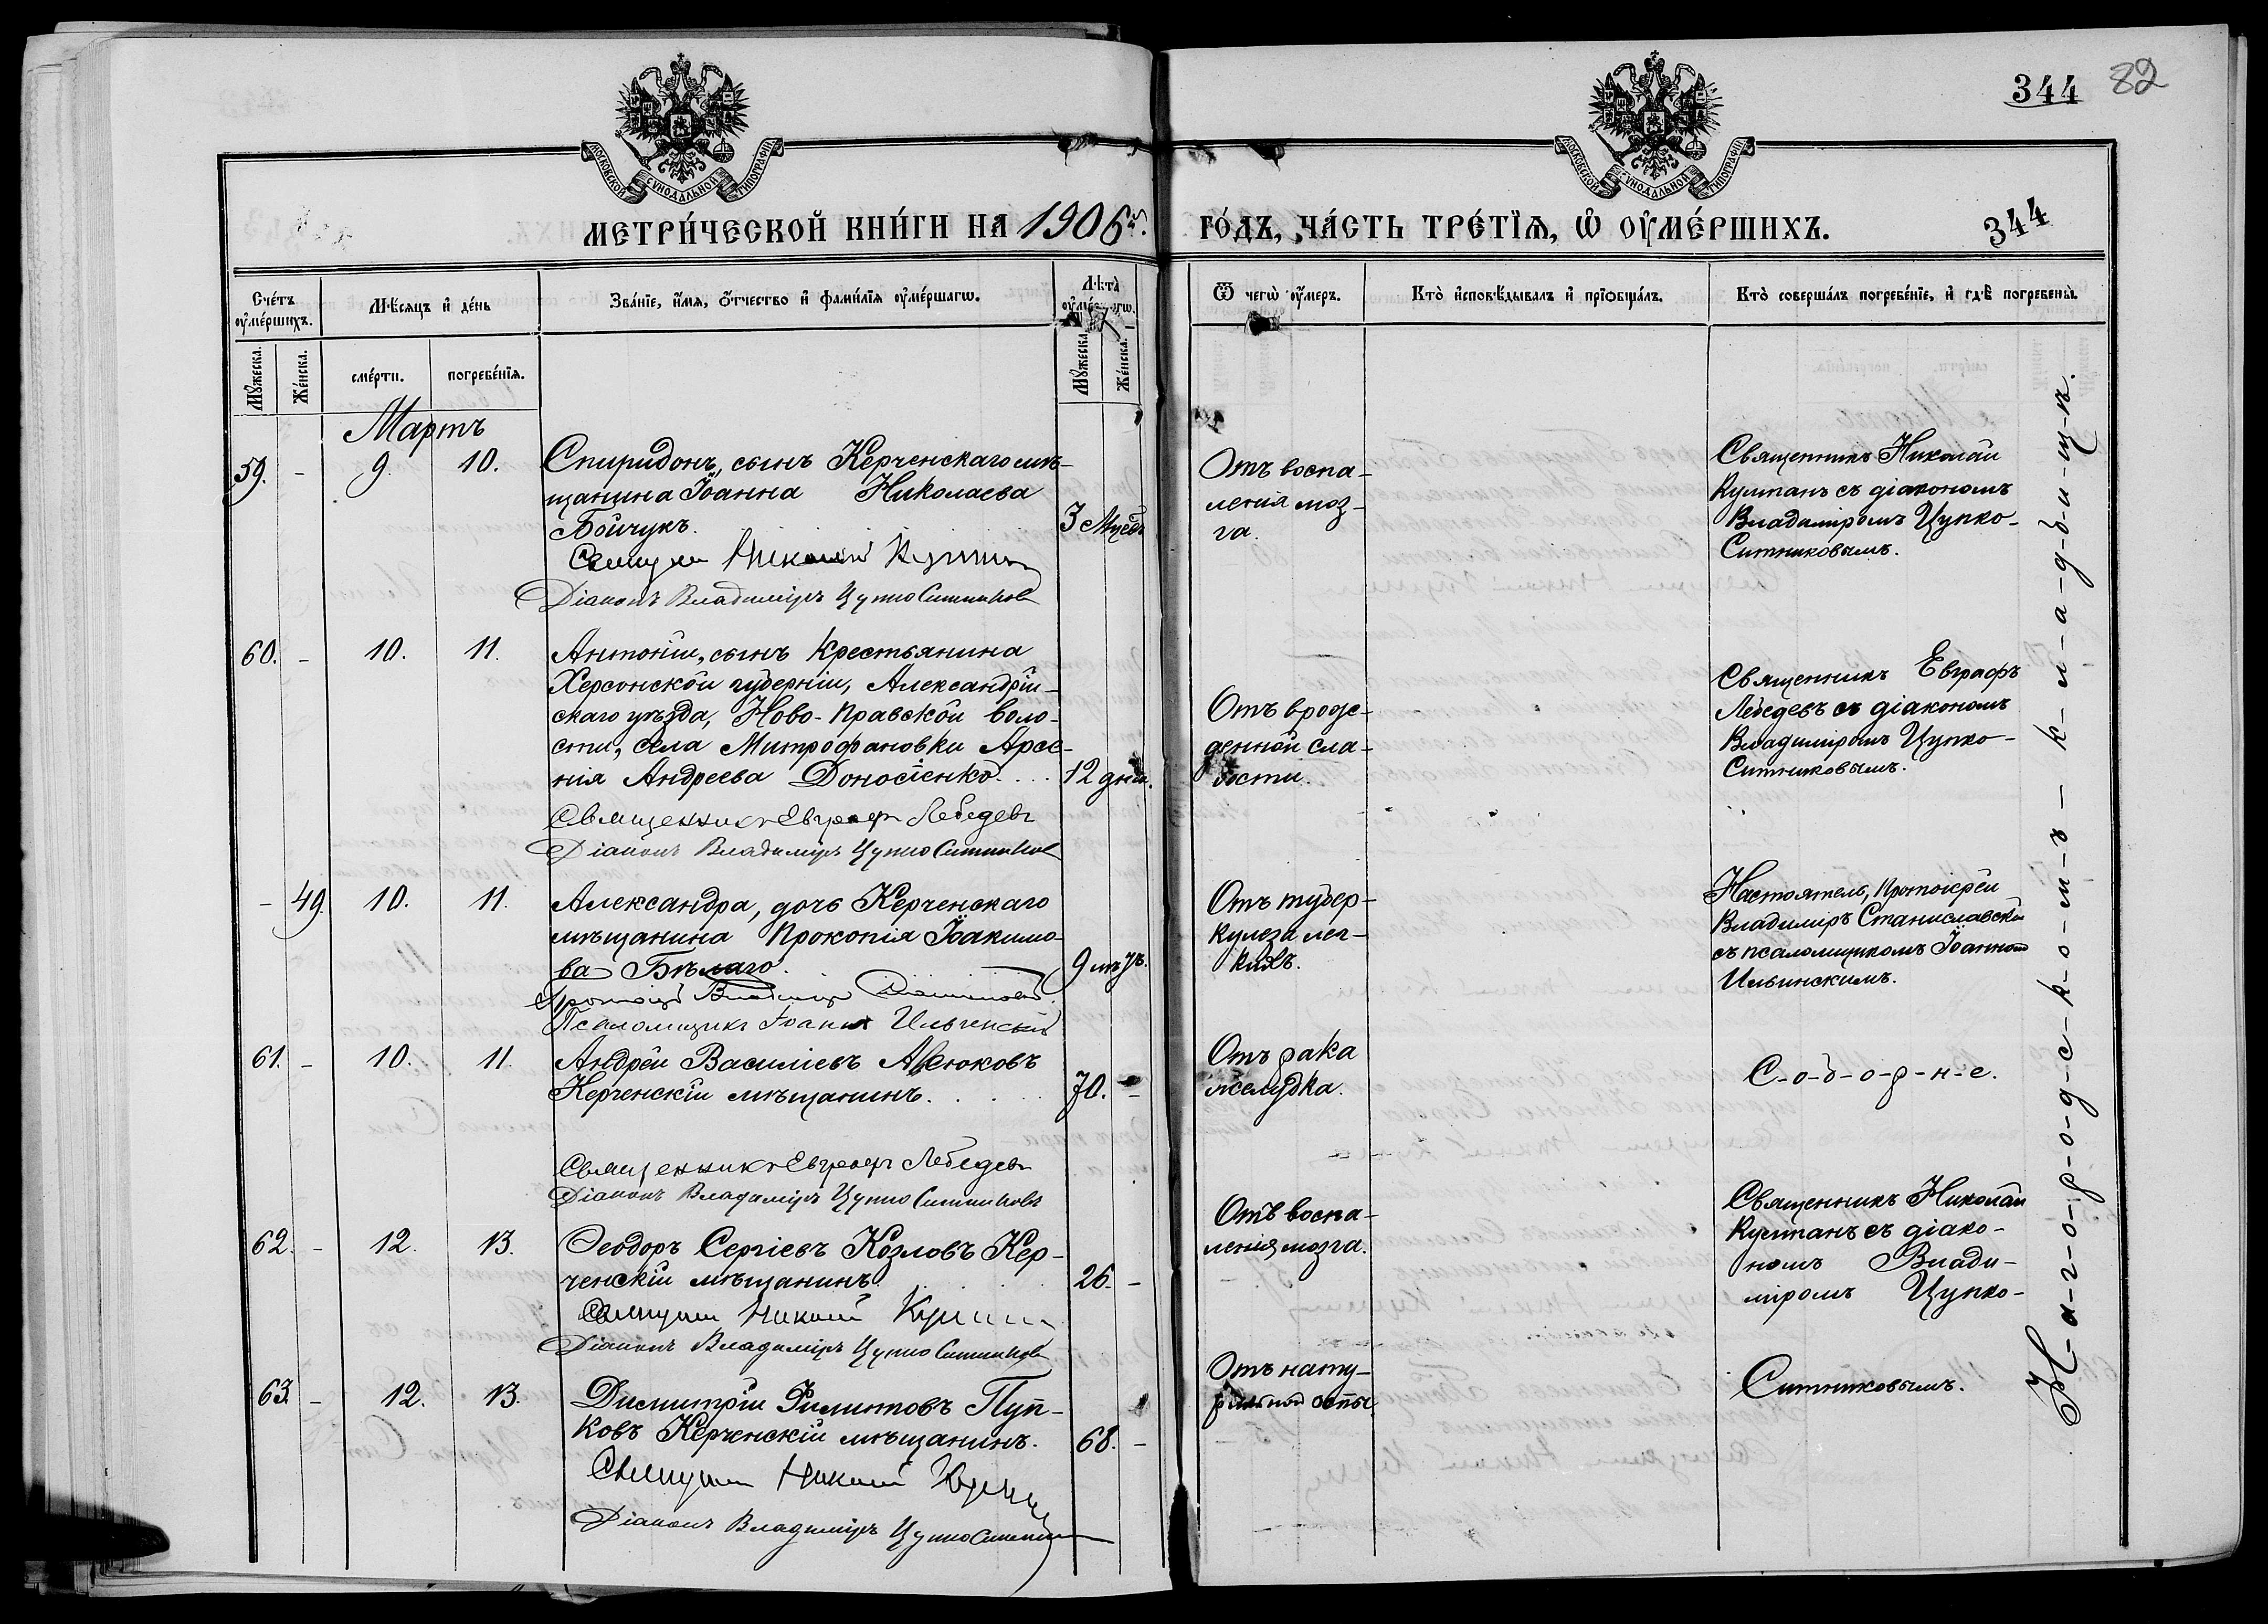 344 82
МОСКОВСКОЙ СѴНОДАЛЬНОЙ ТИПОГРАФІИ
МОСКОВСКОЙ СѴНОДАЛЬНОЙ ТИПОГРАФІИ
МЕТРИ́ЧЕСКОЙ КНИ́ГИ НА 1906й.
ГО́ДЪ, ЧА́СТЬ ТРЕ́ТЇѦ, Ѡ҆ ОУ҆МЕ́РШИХЪ.
344
Сче́тъ оу҆ме́ршихъ.
Мѣ́сѧцъ и҆ де́нь
Зва́нїе, и҆́мѧ, ѻ҆́тчество и҆ фами́лїѧ оу҆ме́ршагѡ.
Лѣ́та
Муже́ска.
Же́нска.
сме́рти.
погребе́нїѧ.
Муже́ска
Же́нска.
Ѿ чегѡ̀ оу҆́меръ.
Кто̀ и҆сповѣ́дывалъ и҆ прїѡбща́лъ.
Кто̀ соверша́лъ погребе́нїе, и҆ гдѣ̀ погребены̀.
Мартъ
59. - 9. 10.
Спиридонъ, сынъ Керченскаго мѣ-
щанина Іоанна Николаева
Бойчукъ. 3 мцев
Священ Николай Култан
Діаконъ Владиміръ Цупко Ситников
Отъ воспа-
ленія моз-
га.
Священникъ Николай
Култанъ съ діакономъ
Владиміромъ Цупко-
Ситниковымъ.
60. - 10. 11.
Антоній, сынъ крестьянина
Херсонской губерніи, Александрій-
скаго уѣзда, Ново-Правской воло-
сти, села Митрофановки Арсе-
нія Андреева Доносіенко. . . . 12 дней.
Священникъ Евграфъ Лебедевъ
Діаконъ Владиміръ Цупко Ситников
Отъ врож-
денной сла-
бости.
Священникъ Евграфъ
Лебедевъ съ діакономъ
Владиміромъ Цупко-
Ситниковымъ.
- 49. 10. 11.
Александра, дочь Керченскаго
мѣщанина Прокопія Іоакимо-
ва Бѣлаго. 9 мѣц.
Протоіер Владимір Станиславскій
Псаломщикъ Іоаннъ Ильинскій
Отъ тубер-
кулеза лег-
кихъ.
Настоятель, Протоіерей
Владиміръ Станиславскій
съ псаломщикомъ Іоанномъ
Ильинскимъ.
61. - 10. 11.
Андрей Василіевъ
Керченскій мѣщанинъ. . . . . 70. -
Священникъ Евграфъ Лебедевъ
Діаконъ Владиміръ Цупко Ситниковъ
Отъ рака
желудка.
С-о-б-о-р-н-е.
62. - 12. 13.
Ѳеодоръ Сергіевъ Козловъ Кер-
ченскій мѣщанинъ. . . . 26. -
Священ Николай Култан
Діаконъ Владиміръ Цупко Ситников
Отъ воспа-
ленія мозга.
Священникъ Николай
Култанъ съ діако-
номъ Влади-
міромъ Цупко-
63. - 12. 13.
Димитрій Филиповъ Пуп-
ковъ Керченскій мѣщанинъ. 68. -
Священ Николай Култан
Діаконъ Владиміръ Цупко Ситников
Отъ нату-
ральной оспы.
Ситниковымъ.
Н-а-г-о-р-о-д-с-к-о-м-ъ - к-л-а-д-б-и-щ-ѣ.